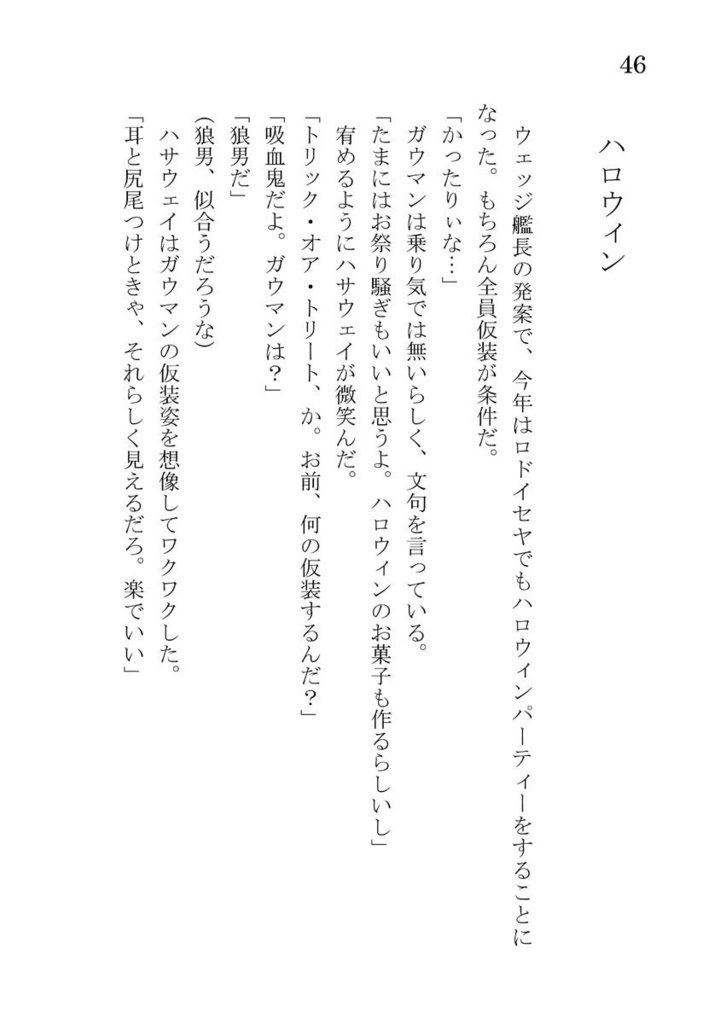 46
ハロウィン
ウェッジ艦長の発案で、今年はロドイセヤでもハロウィンパーティーをすることに
なった。もちろん全員仮装が条件だ。
「かったりぃな…」
ガウマンは乗り気では無いらしく、文句を言っている。
「たまにはお祭り騒ぎもいいと思うよ。ハロウィンのお菓子も作るらしいし」
宥めるようにハサウェイが微笑んだ。
「トリック・オア・トリート、か。お前、何の仮装するんだ？」
「吸血鬼だよ。ガウマンは？」
「狼男だ」
(狼男、似合うだろうな)
ハサウェイはガウマンの仮装姿を想像してワクワクした。
「耳と尻尾つけときゃ、それらしく見えるだろ。楽でいい」